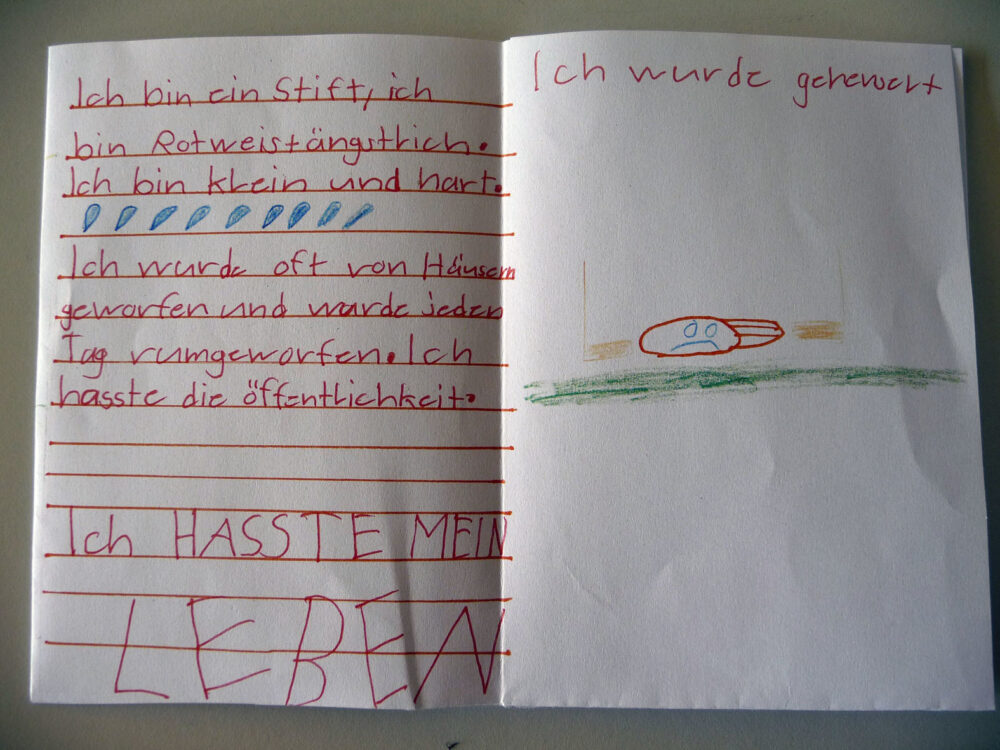 Ich bin ein Stift, ich
bin Rotweist+ängstlich.
Ich bin klein und hart.
Ich wurde oft von Häusern
geworfen und wurde jeden
Tag rumgeworfen. Ich
hasste die öffentlichkeit.
Ich HASSTE MEIN
LEBEN
Ich wurde